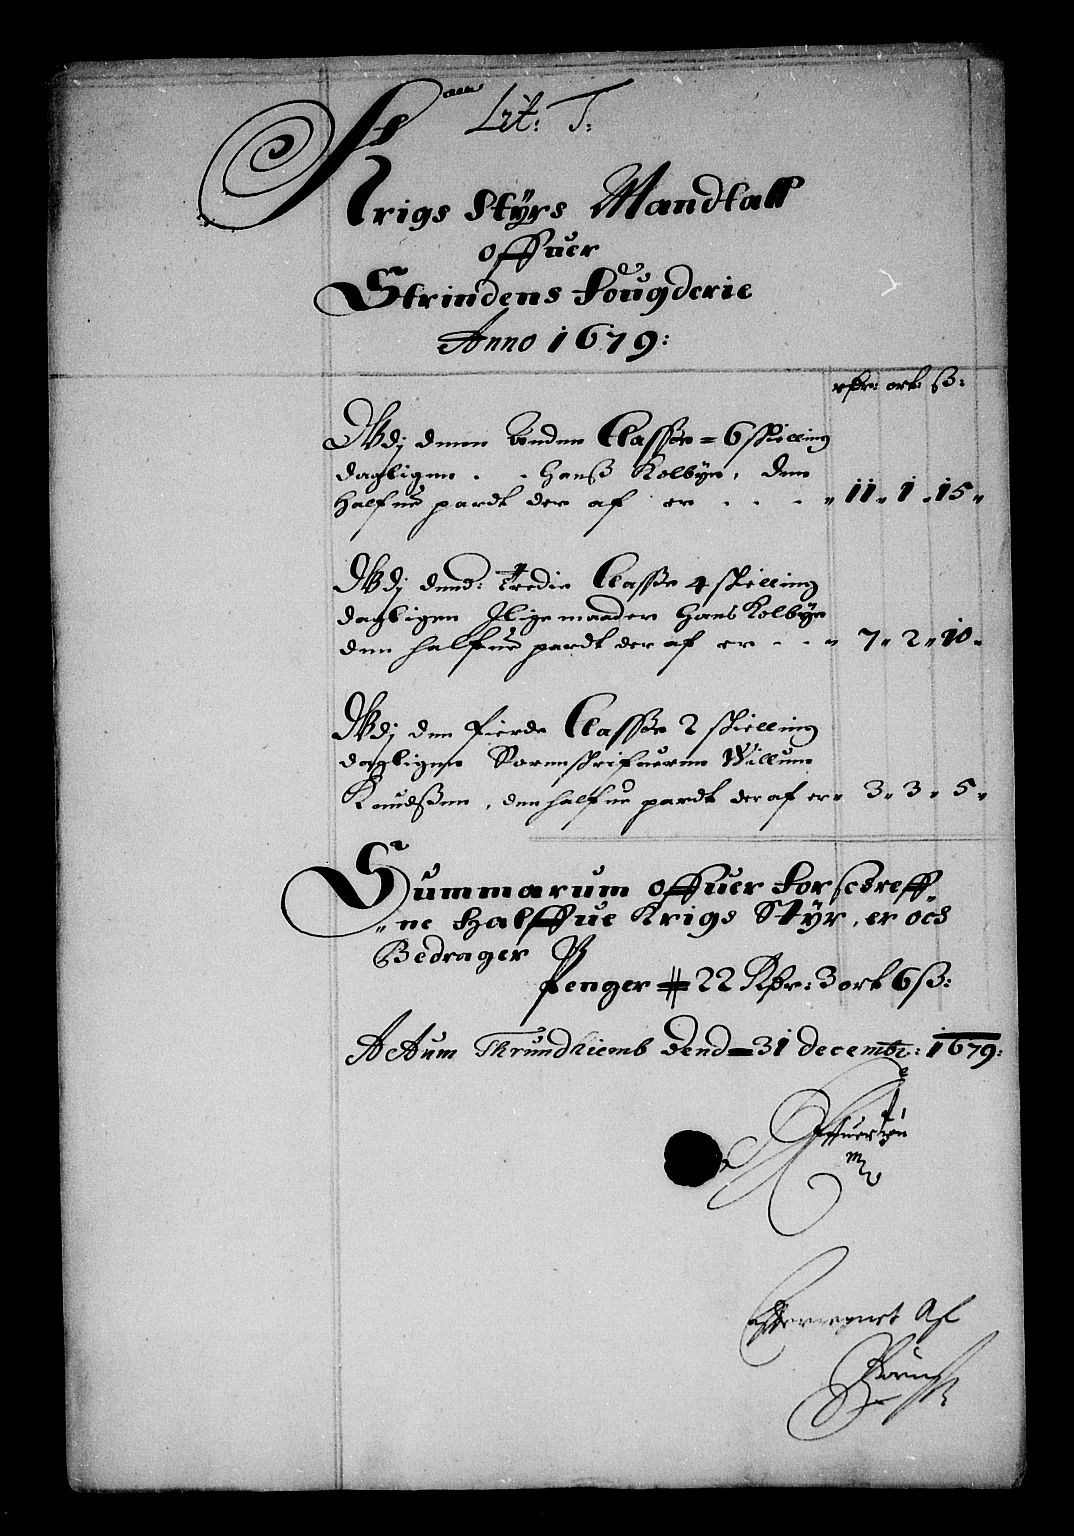 Lit: T:
Krigs Styrs Mandtall
offuer
Strindens Fougderie
Anno 1679:
rdr: ort ß:
Udj denen anden Classe = 6 skielling
dagligen . . Hanß Kolbÿe, den
halfue pardt der af er . . . " 11 " 1 " 15 "
Udj dend: Tredie Classe 4 skielling
dagligen Jligemaader Hans Kolbÿe
den halfue pardt der af er . . " 7 " 2 " 10 "
Udj den fierde Classe 2 skielling
dagligen Sorenskrifueren Willum
Knudßen, den halfue pardt der af er " 3 " 3 " 5 "
Summarum offuer forschreff
" ne Halffue Krigs Stÿr, er och
Bedrager
Penger # 22 Rdr: 3 ort 6 ß:
Actum Thrundhiemb Dend = 31 decembr: 1679: